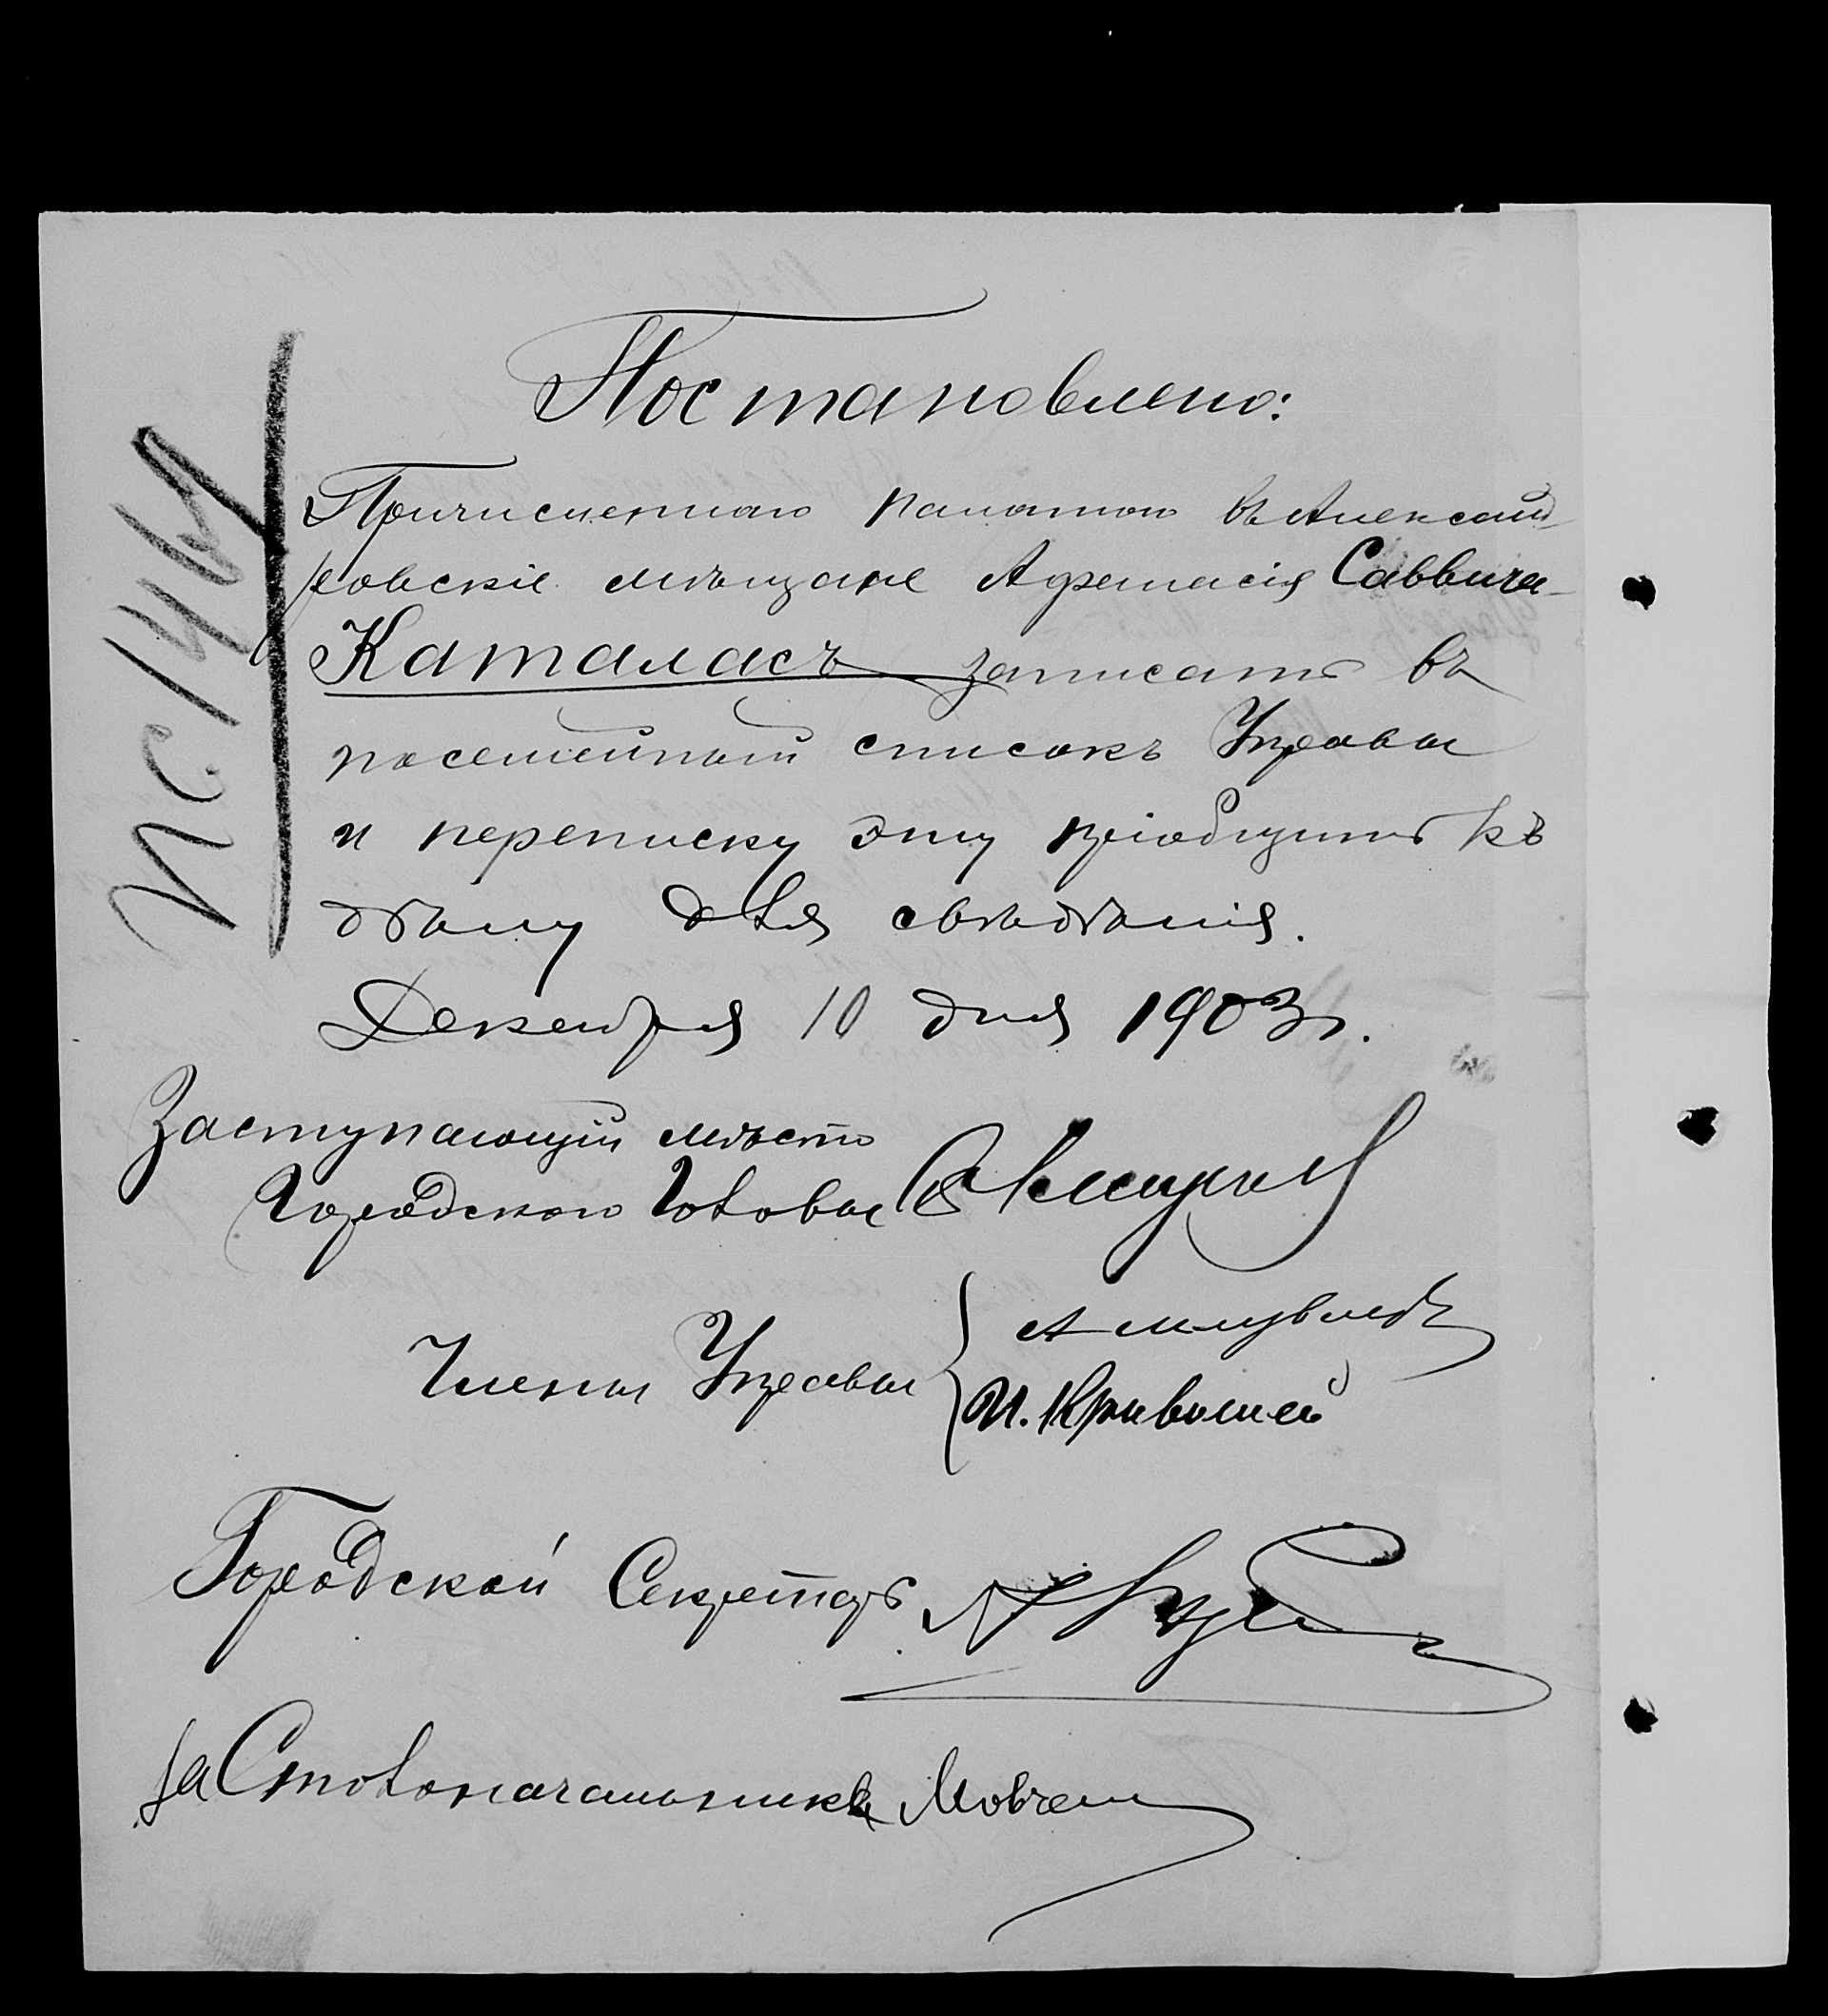 Постановлено:
Причисленнаго палатою въ Александ-
ровскіе мѣщане Афанасія Саввича
Каталасъ записать въ
посемейный списокъ Управы
и переписку эту пріобщить къ
дѣлу для свѣдѣнія.
Декабря 10 дня 1903 г.
Заступающій мѣсто
Городского Головы
Члены Управы
И. Кривошей
Городской Секретарь
за Столоначальника Мовчан